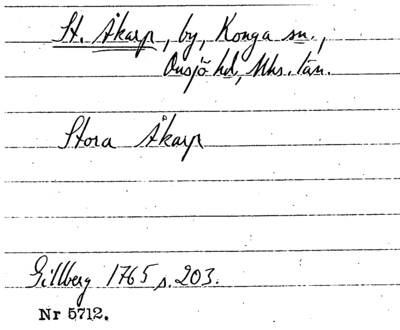 St. Åkarp, by, Konga sn.,
Onsjö hd, Mhs. län.
Stora Åkarp
Gillberg 1765 s. 203.
Nr 5712.